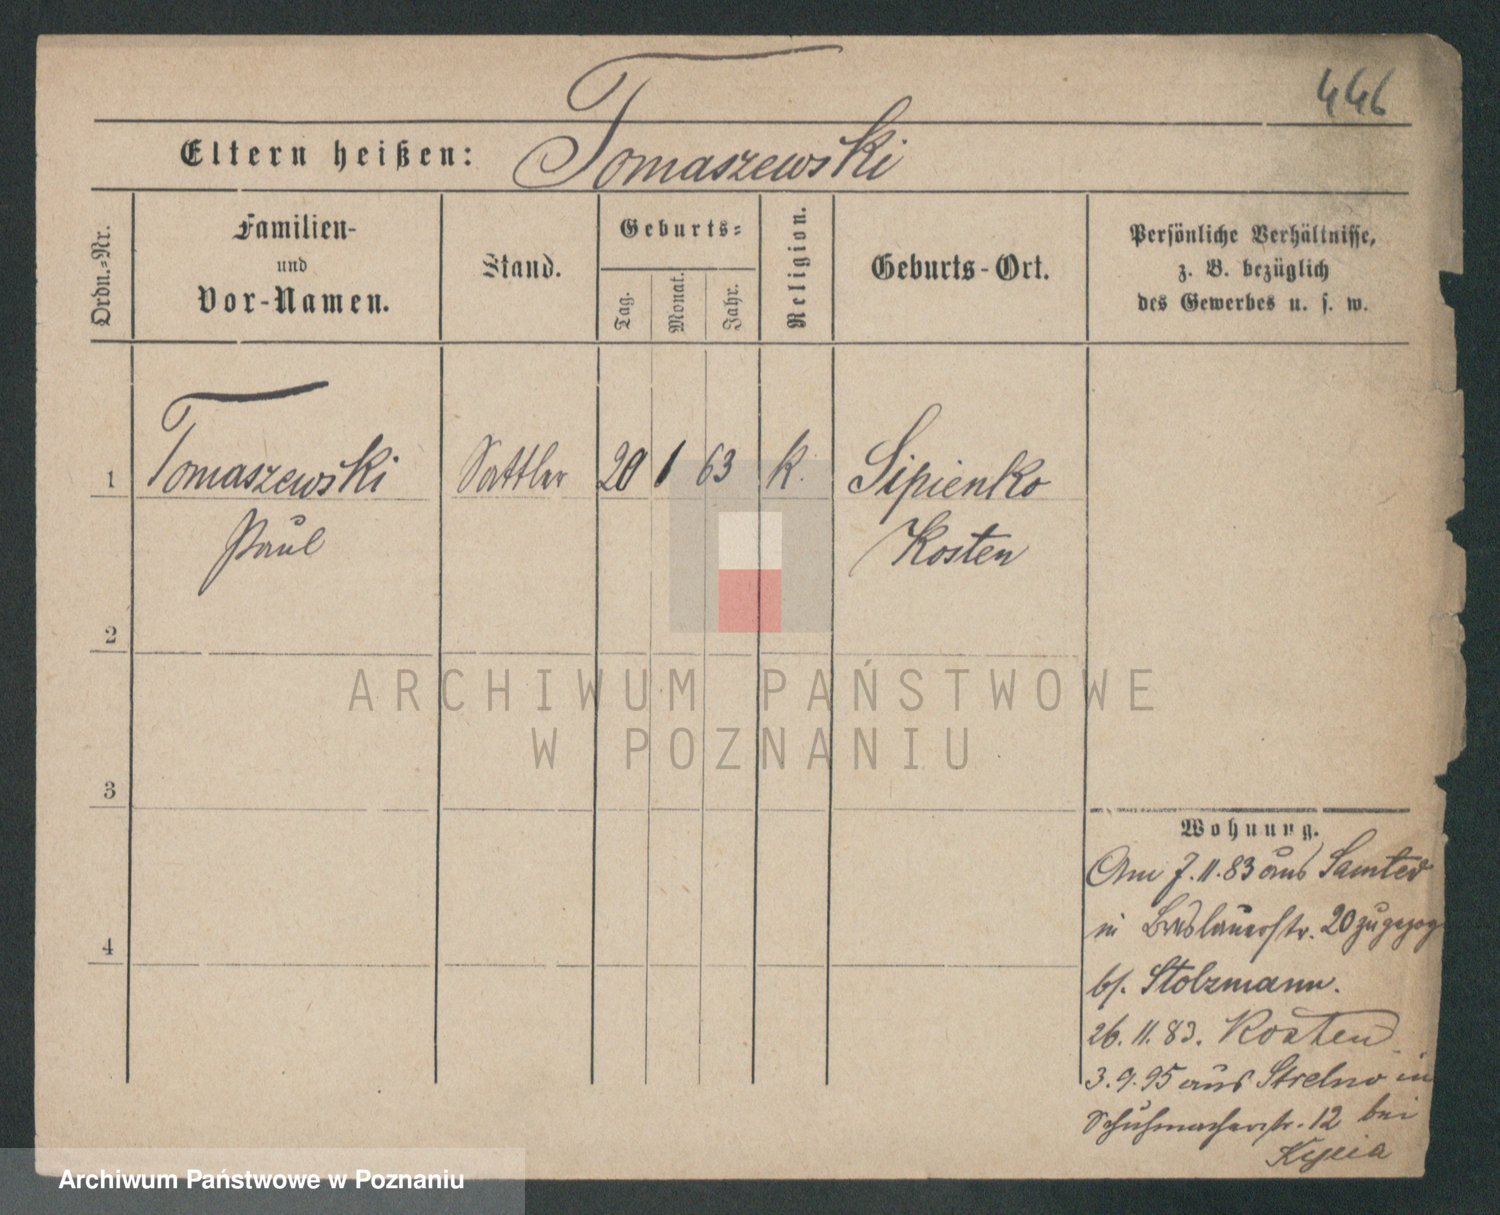 446
Eltern heißen: Tomaszewski
Ordn.-Nr.
Familien-
und
Vor-Namen.
Stand.
Geburts-
Tag.
Monat.
Jahr.
Religion.
Geburts-Ort.
Persönliche Verhältnisse,
z. B. bezüglich
des Gewerbes u. s. w.
1 Tomaszewski Sattler 20 1 63 k. Sipienko
Paul Kosten
2
ARCHIWUM PAŃSTWOWE
W POZNANIU
3
4
Wohnung.
Am 7.11.83 aus Samter
in Breslauerstr. 20 zugezog
bf. Stolzmann.
26.11.83. Kosten
3.9.95 aus Strelno in
Schuhmacherstr. 12 bei
Archiwum Państwowe w Poznaniu